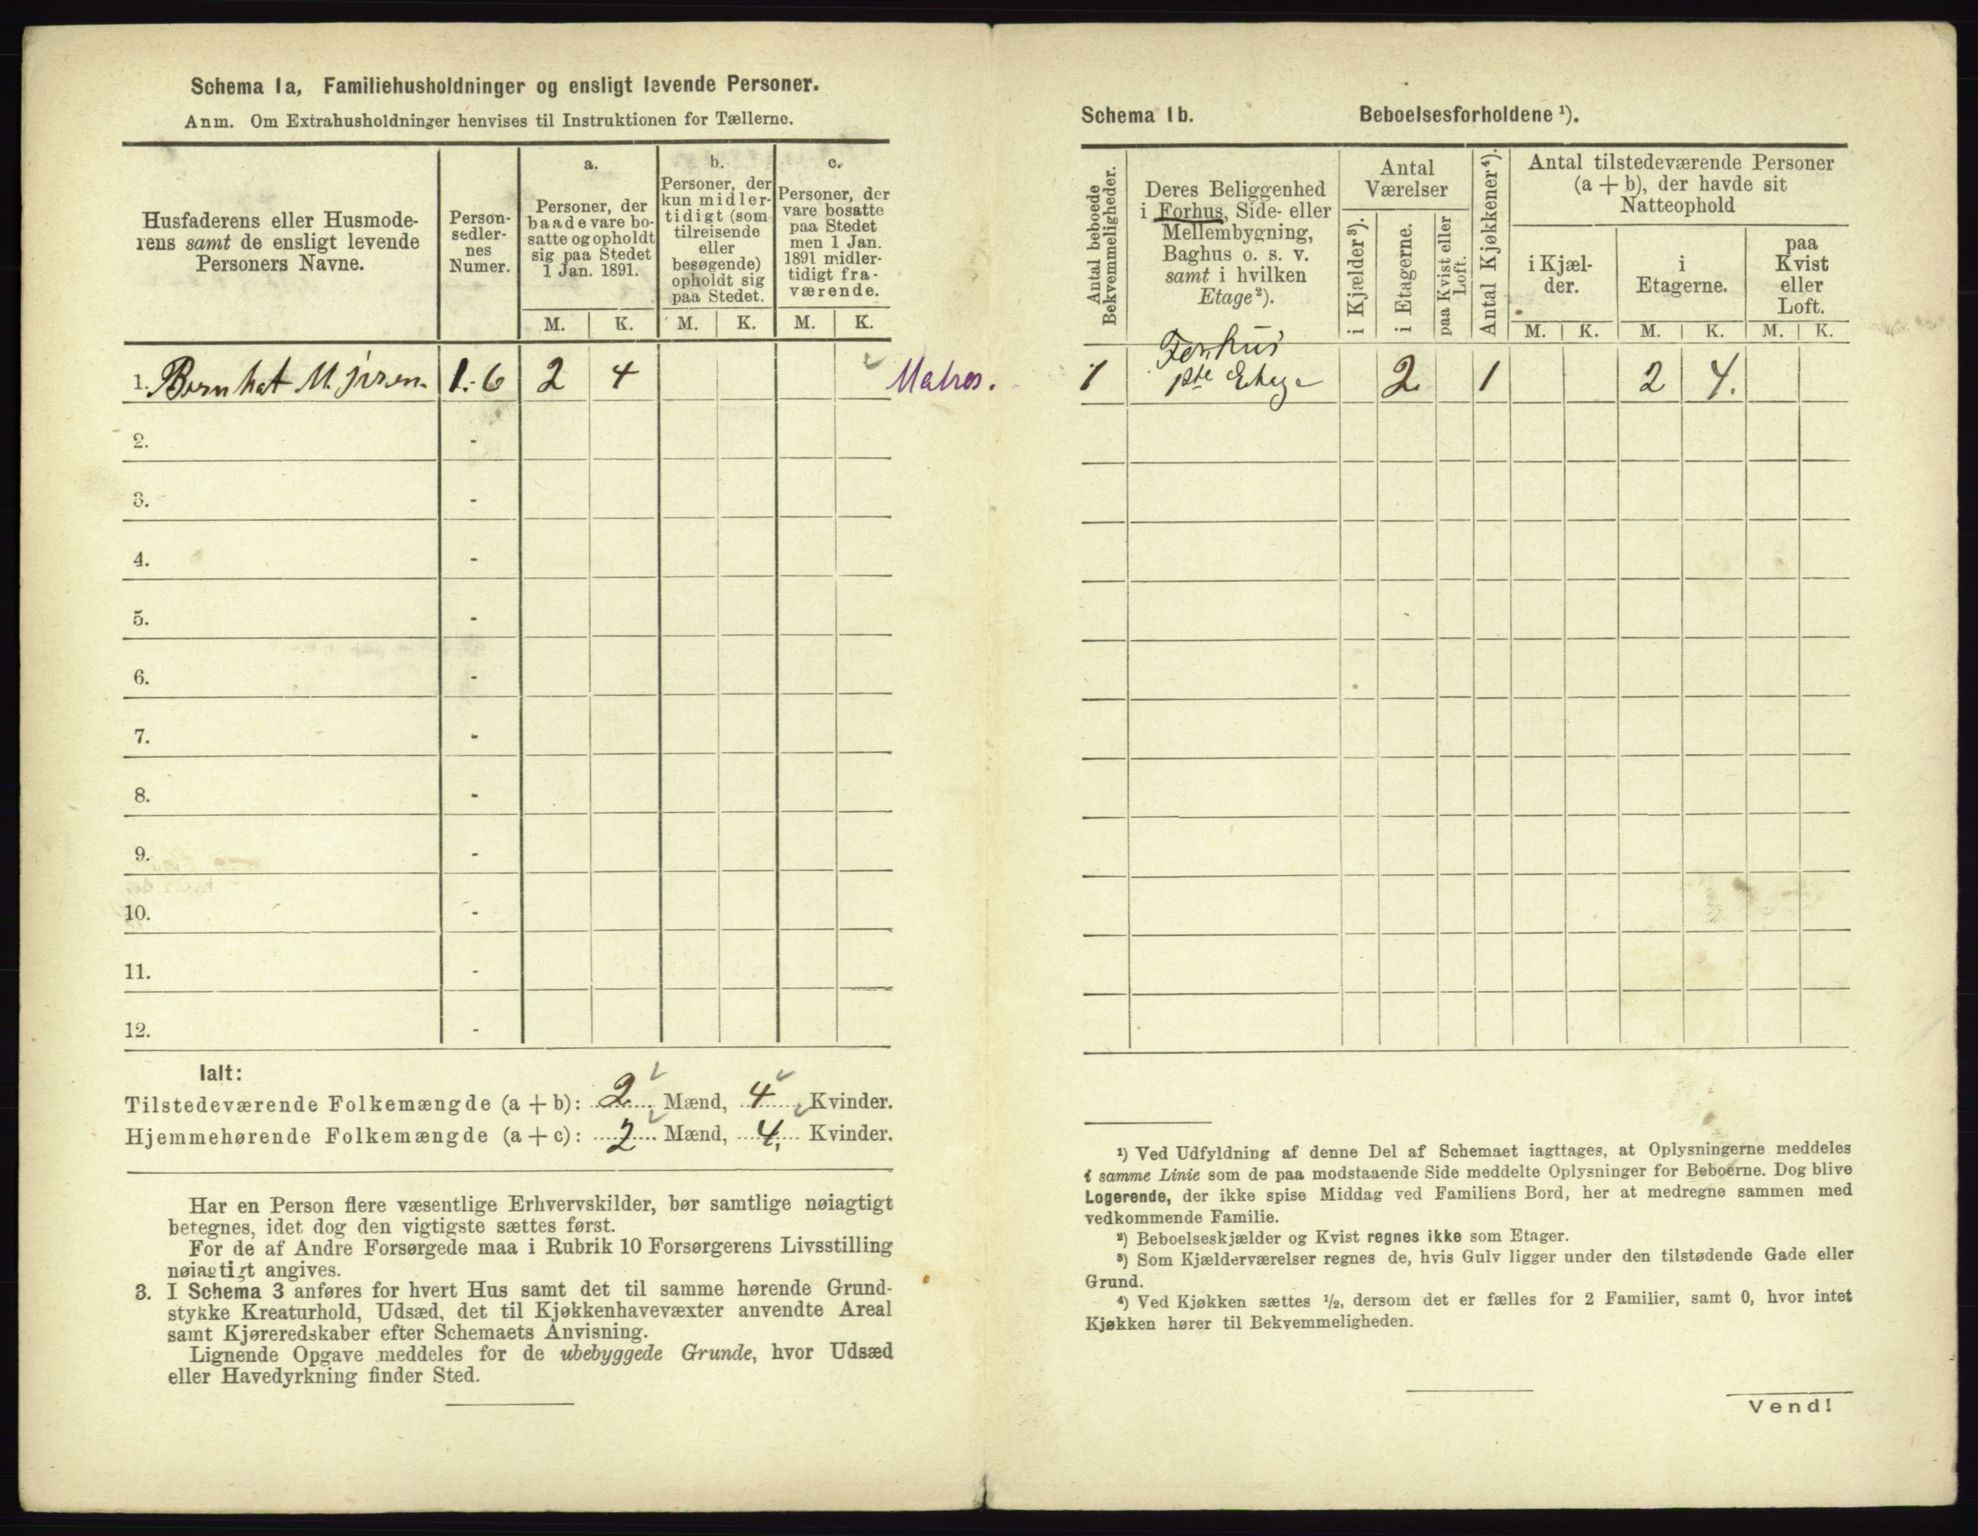 Schema 1a, Familiehusholdninger og ensligt levende Personer.
Anm. Om Extrahusholdninger henvises til Instruktionen for Tællerne.
Husfaderens eller Husmode-
rens samt de ensligt levende
Personers Navne.
Person-
sedler-
nes
Numer.
a.
Personer, der
baade vare bo-
satte og opholdt
sig paa Stedet
1 Jan. 1891.
b.
Personer, der
kun midler-
tidigt (som
tilreisende
eller
besøgende)
opholdt sig
paa Stedet.
c.
Personer, der
vare bosatte
paa Stedet
men 1 Jan.
1891 midler-
tidigt fra-
værende.
M. K. M. K. M. K.
1. 1-6 2 4 Matros.
2. -
3. -
4. -
5. -
6. -
7. -
8. -
9. -
10. -
11. -
12. -
Ialt:
Tilstedeværende Folkemængde (a + b): 2 Mænd, 4 Kvinder.
Hjemmehørende Folkemængde (a + c): 2 Mænd, 4. Kvinder.
Har en Person flere væsentlige Erhvervskilder, bør samtlige nøiagtigt
betegnes, idet dog den vigtigste sættes først.
For de af Andre Forsørgede maa i Rubrik 10 Forsørgerens Livsstilling
nøiagtigt angives.
3. I Schema 3 anføres for hvert Hus samt det til samme hørende Grund-
stykke Kreaturhold, Udsæd, det til Kjøkkenhavevæxter anvendte Areal
samt Kjøreredskaber efter Schemaets Anvisning.
Lignende Opgave meddeles for de ubebyggede Grunde, hvor Udsæd
eller Havedyrkning finder Sted.
Schema 1b. Beboelsesforholdene ¹).
Antal beboede
Bekvemmeligheder.
Deres Beliggenhed
i Forhus, Side- eller
Mellembygning,
Baghus o. s. v.
samt i hvilken
Etage²).
Antal
Værelser
i Kjælder³).
i Etagerne.
paa Kvist eller
Loft.
Antal Kjøkkener⁴).
Antal tilstedeværende Personer
(a + b), der havde sit
Natteophold
i Kjæl-
der.
i
Etagerne.
paa
Kvist
eller
Loft.
M. K. M. K. M. K.
Forhus
1 1ste Etage 2 1 2 4.
¹) Ved Udfyldning af denne Del af Schemaet iagttages, at Oplysningerne meddeles
i samme Linie som de paa modstaaende Side meddelte Oplysninger for Beboerne. Dog blive
Logerende, der ikke spise Middag ved Familiens Bord, her at medregne sammen med
vedkommende Familie.
²) Beboelseskjælder og Kvist regnes ikke som Etager.
³) Som Kjælderværelser regnes de, hvis Gulv ligger under den tilstødende Gade eller
Grund.
⁴) Ved Kjøkken sættes ½, dersom det er fælles for 2 Familier, samt 0, hvor intet
Kjøkken hører til Bekvemmeligheden.
Vend!